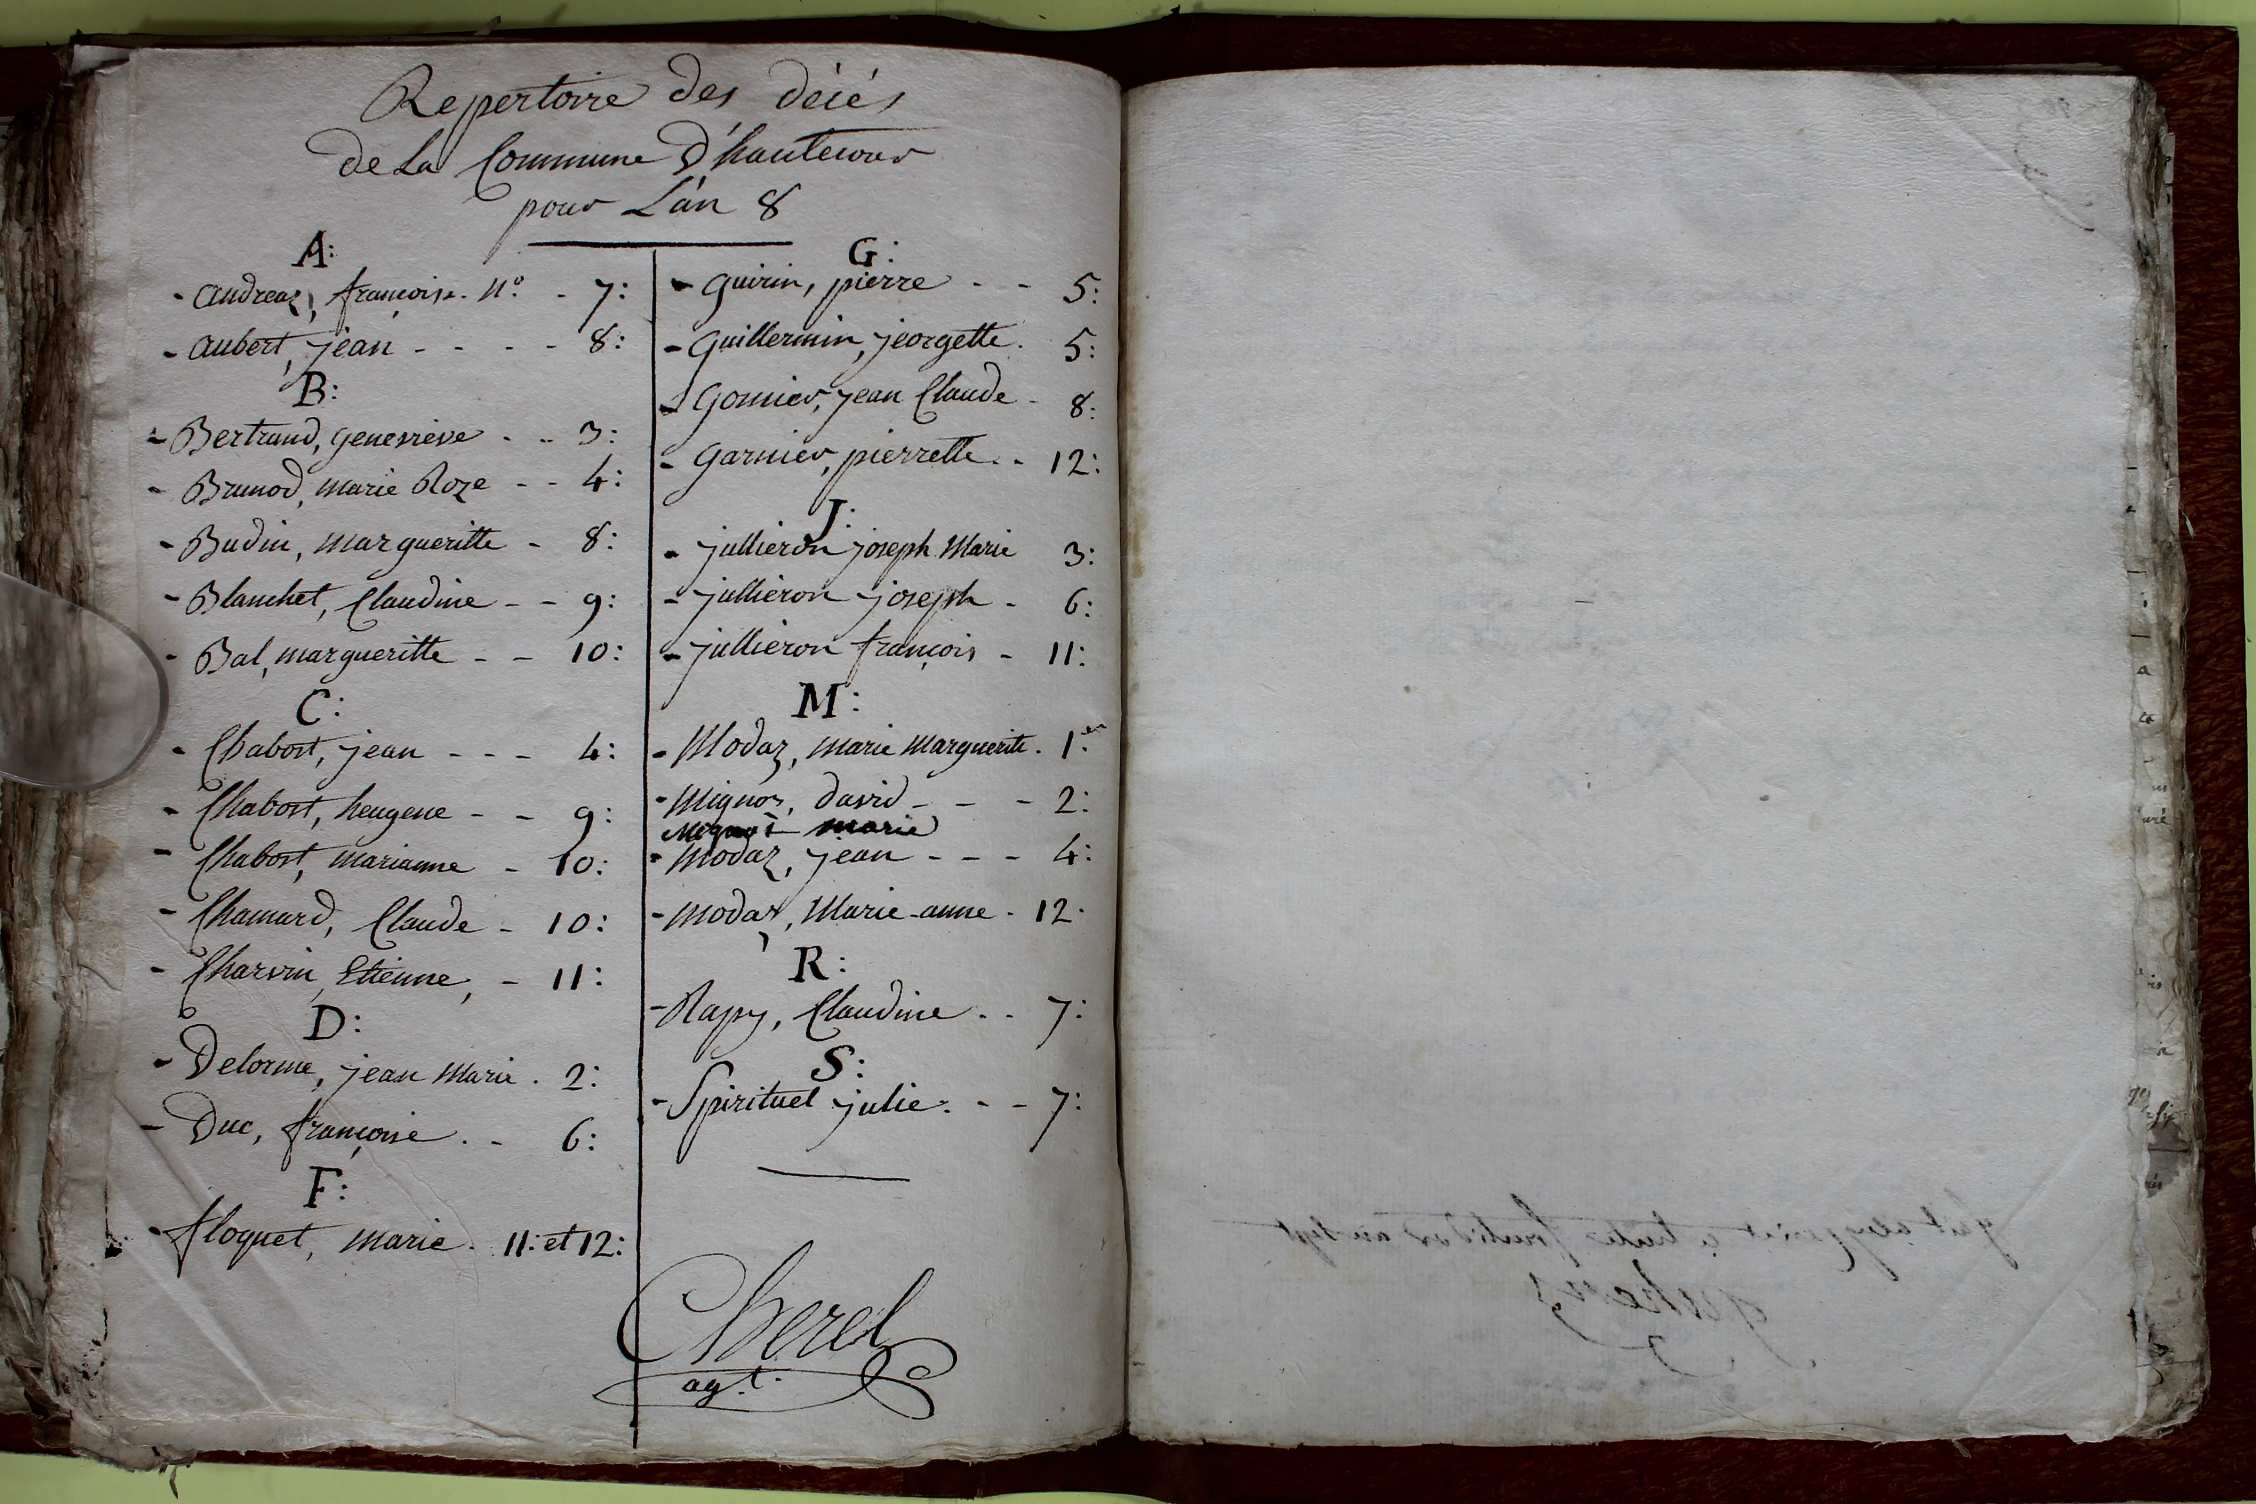 Repertoire des décés
de La Commune d'hautecour
pour L'an 8
A:
- Andreaz, françoise. N.° - 7:
- Aubert, jean - - - - 8:
B:
- Bertrand, genevieve - - 3:
- Brunod, marie Roze - - 4:
- Budin, margueritte - 8:
- Blanchet, Claudine - - 9:
- Bal, margueritte - - 10:
C:
- Chabort, jean - - - 4:
- Chabort, heugene - - 9:
- Chabort, marianne - 10:
- Chamard, Claude - 10:
- Charvin, Etienne, - 11:
D:
- Delorme, jean Marie . 2:
- Duc, françoise . - 6:
F:
- floquet, marie . 11: et 12:
G:
- Guirin, pierre - - 5:
- Guillermin, jeorgette . 5:
- Gonnier, jean Claude - 8:
- Garnier, pierrette . - 12:
J:
- jullieron joseph Marie 3:
- jullieron joseph - 6:
- jullieron françois - 11:
M:
- Modaz, marie Marguerite . 1.er
- Mignot, david - - - 2:
Mignot marie
- Modaz, jean - - - 4:
- Modaz, Marie-anne - 12.
R:
- Rapy, Claudine . - 7:
S:
- Spirituel julie . - - 7:
Cherel
ag.t.